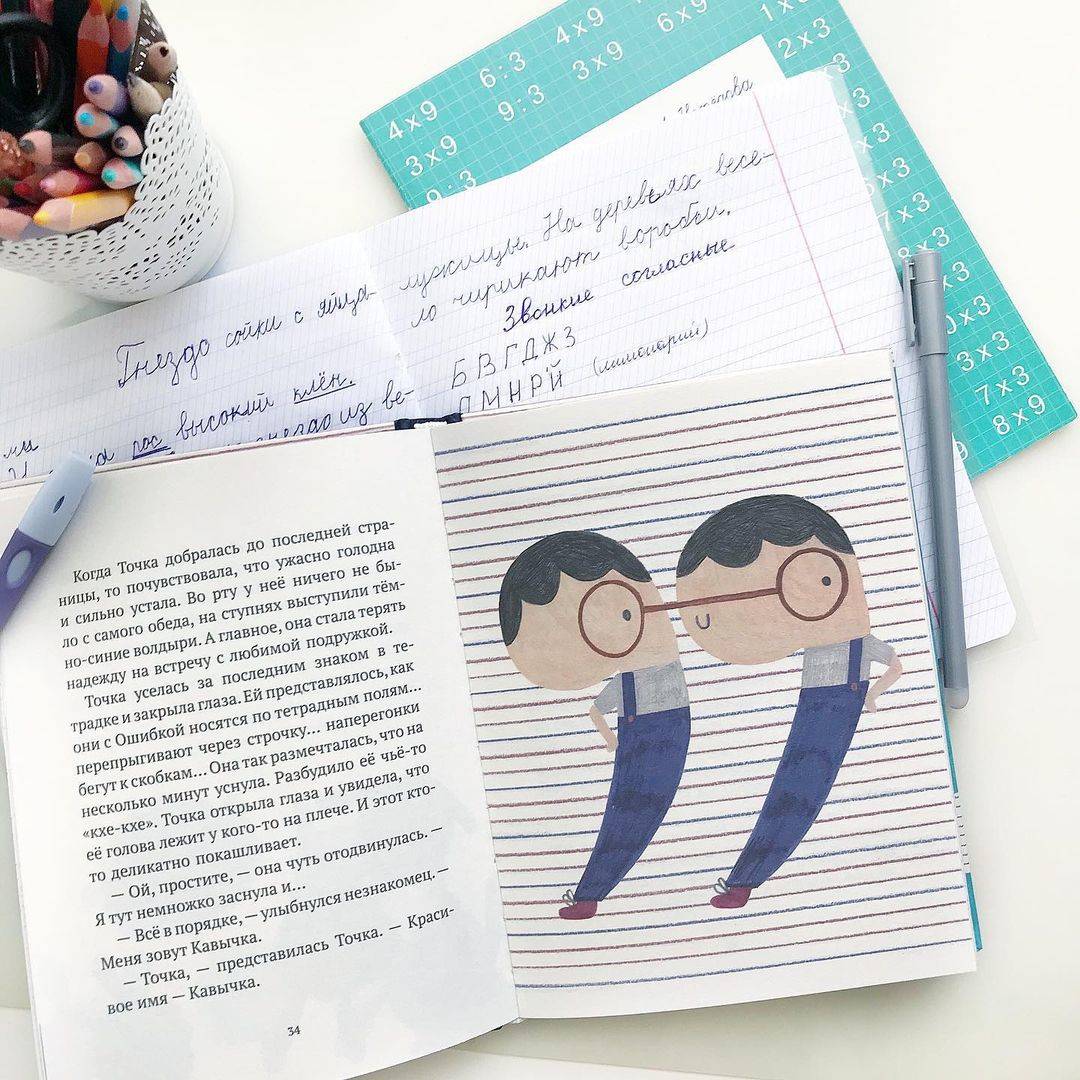 4х9 6:3 4х9 6х9 1х3
3х9 9:3 3х9 2х3
9:3
х3
х3
7х3
8х3
х3
0х3
3х3
7х3
8х9
Гнездо сойки с яйца-
ми
рос высокий клён.
из ве-
лужицы. На деревьях весе-
ло чирикают воробьи.
Звонкие согласные
Б В Г Д Ж З
Л М Н Р Й
Когда Точка добралась до последней стра-
ницы, то почувствовала, что ужасно голодна
и сильно устала. Во рту у неё ничего не бы-
ло с самого обеда, на ступнях выступили тём-
но-синие волдыри. А главное, она стала терять
надежду на встречу с любимой подружкой.
Точка уселась за последним знаком в те-
традке и закрыла глаза. Ей представлялось, как
они с Ошибкой носятся по тетрадным полям...
перепрыгивают через строчку... наперегонки
бегут к скобкам... Она так размечталась, что на
несколько минут уснула. Разбудило её чьё-то
«кхе-кхе». Точка открыла глаза и увидела, что
её голова лежит у кого-то на плече. И этот кто-
то деликатно покашливает.
— Ой, простите, — она чуть отодвинулась. —
Я тут немножко заснула и...
— Всё в порядке, — улыбнулся незнакомец. —
Меня зовут Кавычка.
— Точка, — представилась Точка. — Краси-
вое имя — Кавычка.
34